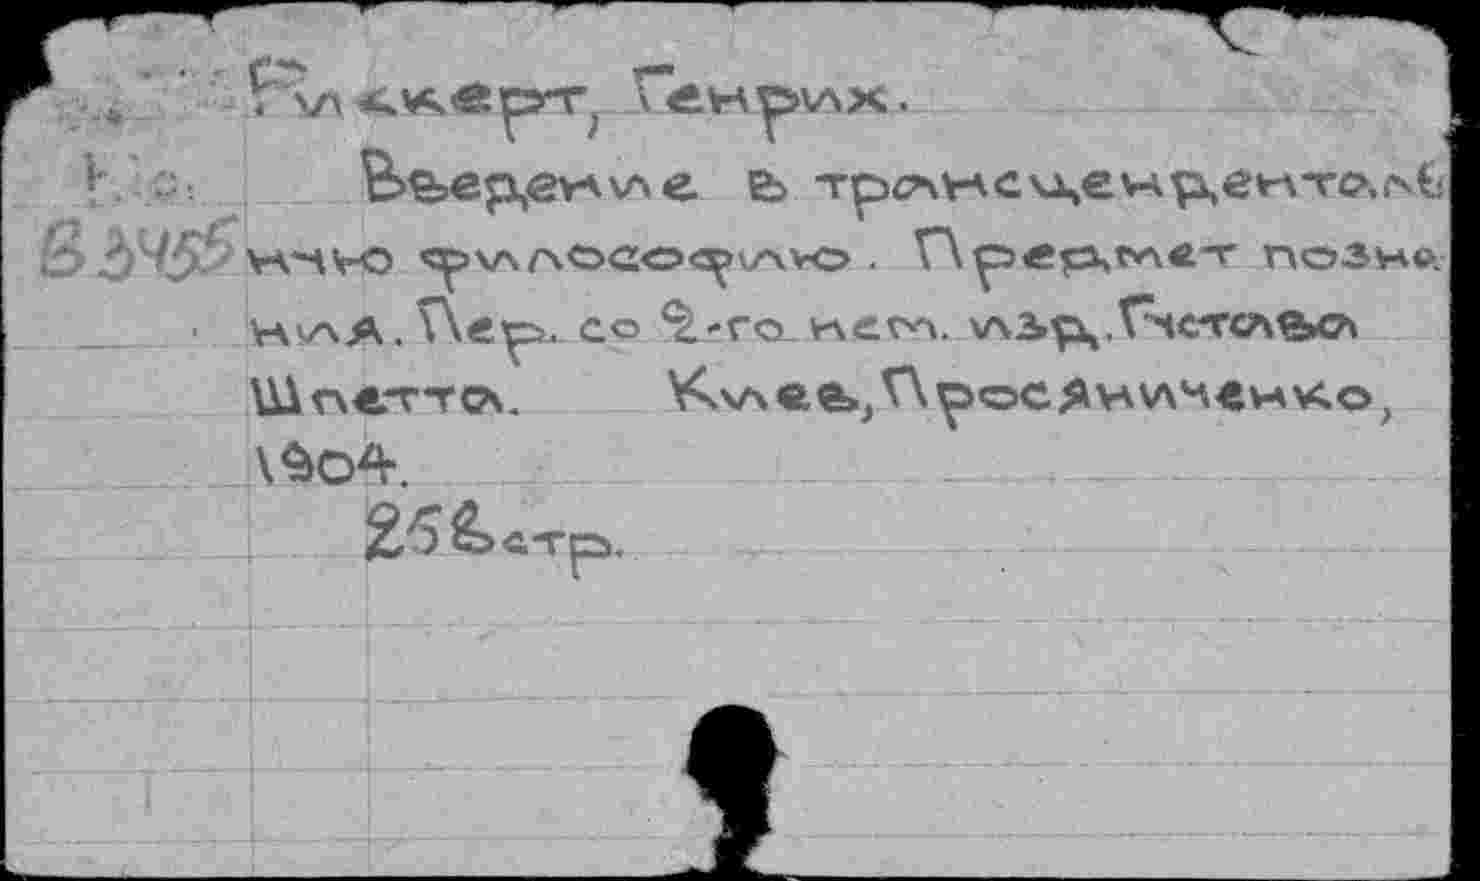 Риккерт, Генрих.
Введение в трансценденталь
ную философию. Предмет позна
ния. Пер. со 2-го нем. изд. Густава
Шпетта. Киев, Просяниченко,
1904.
256 стр.